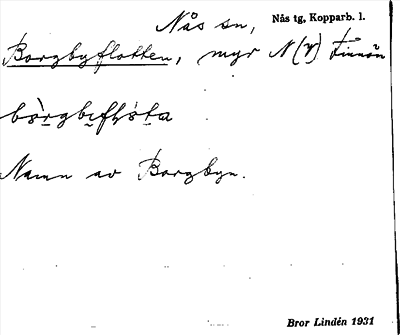 Nås sn, Nås tg, Kopparb. l.
Borgbyflotten, myr N (v) Finnön
Namn av Borgbyn.
Bror Lindén 1931